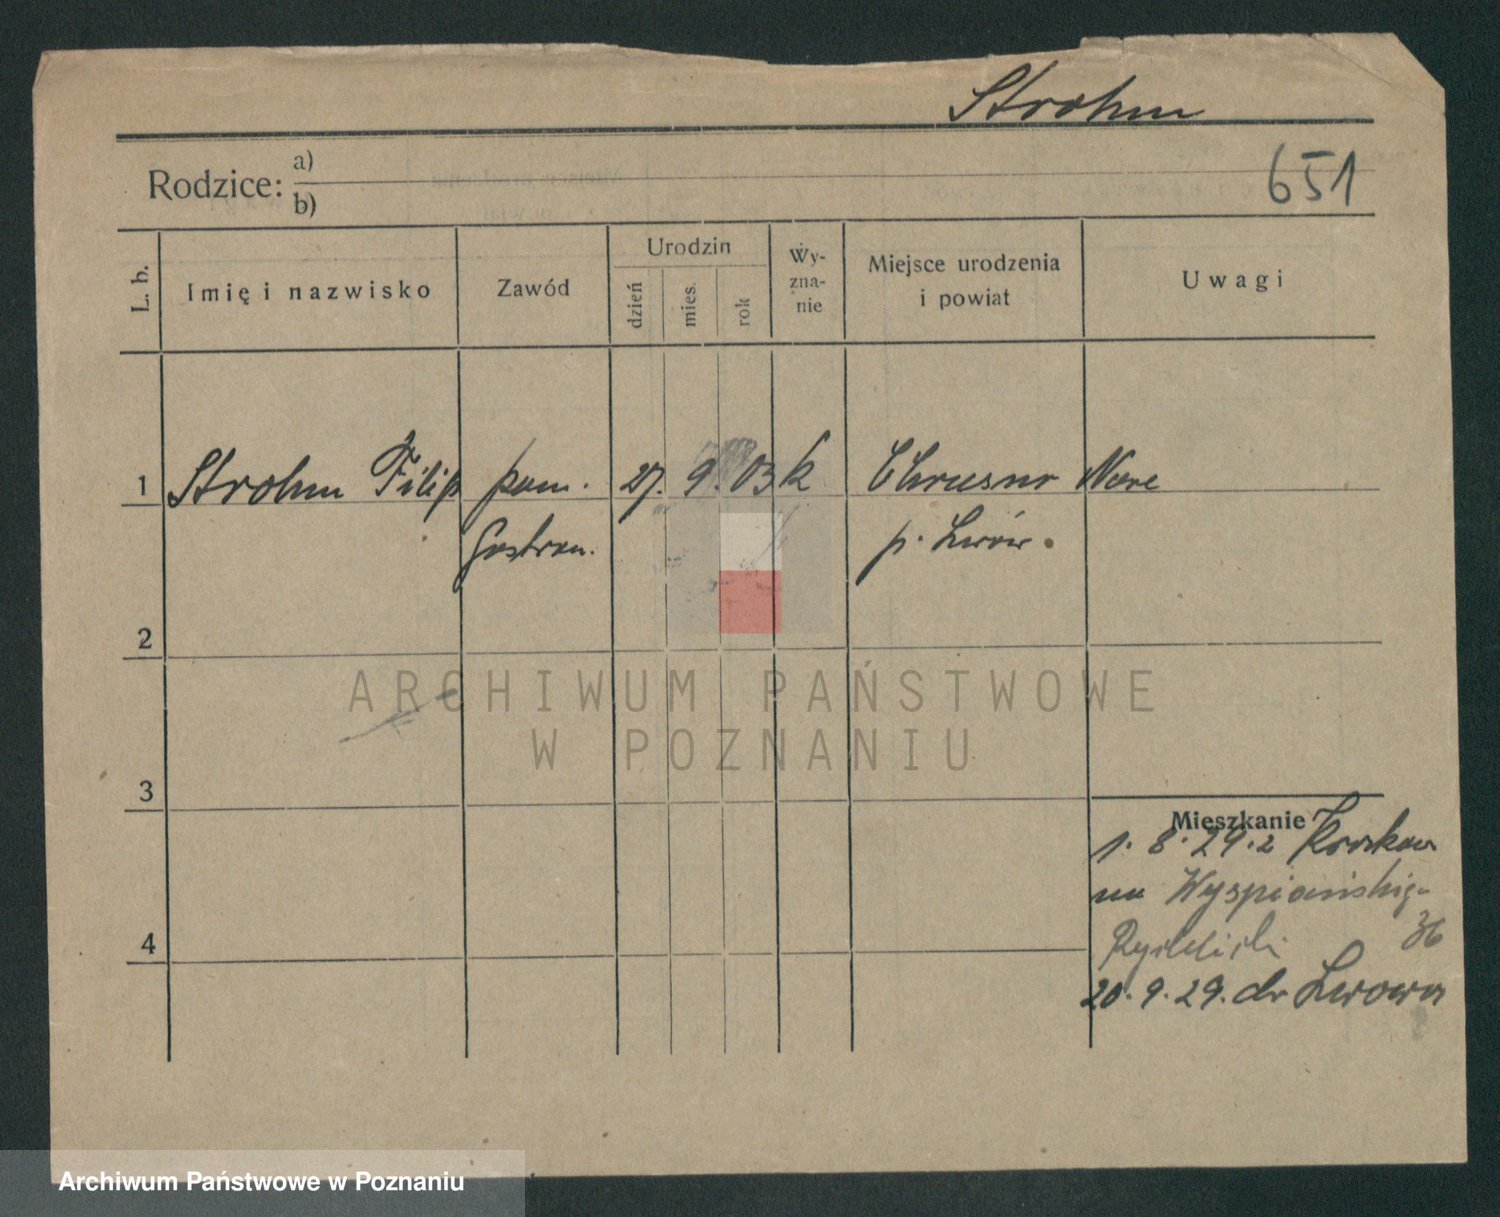 Strohm
Rodzice: a)
b)
651
L. b.
Imię i nazwisko
Zawód
Urodzin
dzień
mies.
rok
Wy-
zna-
nie
Miejsce urodzenia
i powiat
Uwagi
1 Strohm Filip pom. 27. 9. 03 k Chrusno Nowe
Gastron. p. Lwów.
2
3
4
Mieszkanie
1. 8. 29. z Krakowa
na Wyspiańskiego
36
20. 9. 29. do Lwowa
ARCHIWUM PAŃSTWOWE
W POZNANIU
Archiwum Państwowe w Poznaniu